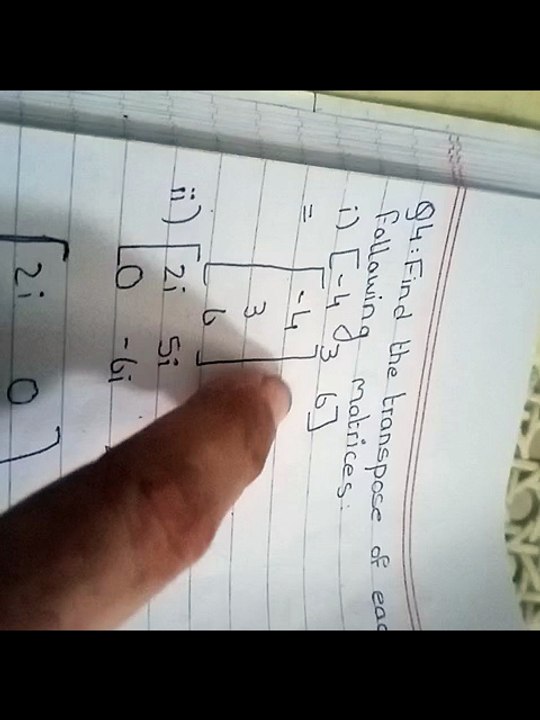 Q4: Find the transpose of eac
following matrices:
i) [-4 3 6]
=
[-4
3
6]
ii) [2i 5i
0 -6i
[2i 0]